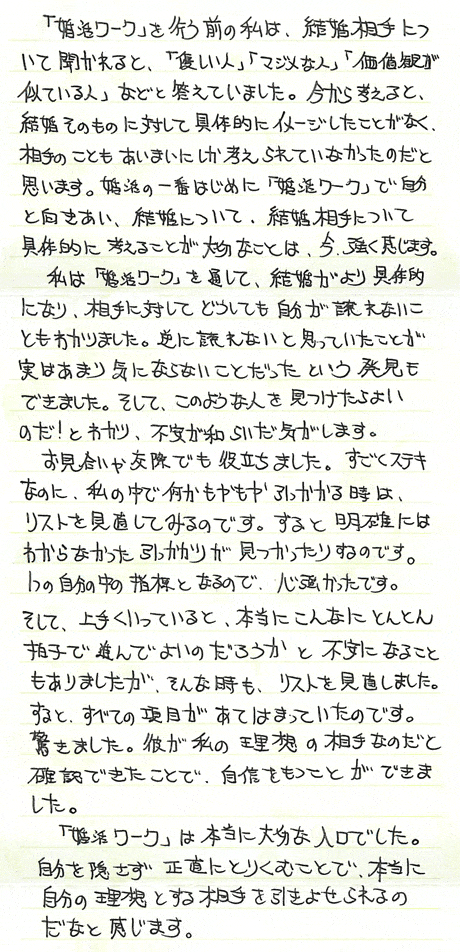 「婚活ワーク」を行う前の私は、結婚相手につ
いて聞かれると、「優しい人」「マジメな人」「価値観が
似ている人」などと答えていました。今から考えると、
結婚そのものに対して具体的にイメージしたことがなく、
相手のこともあいまいにしか考えられていなかったのだと
思います。婚活の一番はじめに「婚活ワーク」で自分
と向きあい、結婚について、結婚相手について
具体的に考えることが大切なことは、今、強く感じます。
私は「婚活ワーク」を通して、結婚がより具体的
になり、相手に対してどうしても自分が譲れないこ
ともわかりました。逆に譲れないと思っていたことが
実はあまり気にならないことだったという発見も
できました。そして、このような人を見つけたらよい
のだ!とわかり、不安が和らいだ気がします。
お見合いや交際でも役立ちました。すごくステキ
なのに、私の中で何かもやもや引っかかる時は、
リストを見直してみるのです。すると明確には
わからなかった引っかかりが見つかったりするのです。
1つの自分の中の指標となるので、心強かったです。
そして、上手くいっていると、本当にこんなにとんとん
拍子で進んでよいのだろうかと不安になること
もありましたが、そんな時も、リストを見直しました。
すると、すべての項目があてはまっていたのです。
驚きました。彼が私の理想の相手なのだと
確認できたことで、自信をもつことができま
した。
「婚活ワーク」は本当に大切な入口でした。
自分を隠さず正直にとりくむことで、本当に
自分の理想とする相手を引きよせられるの
だなと感じます。